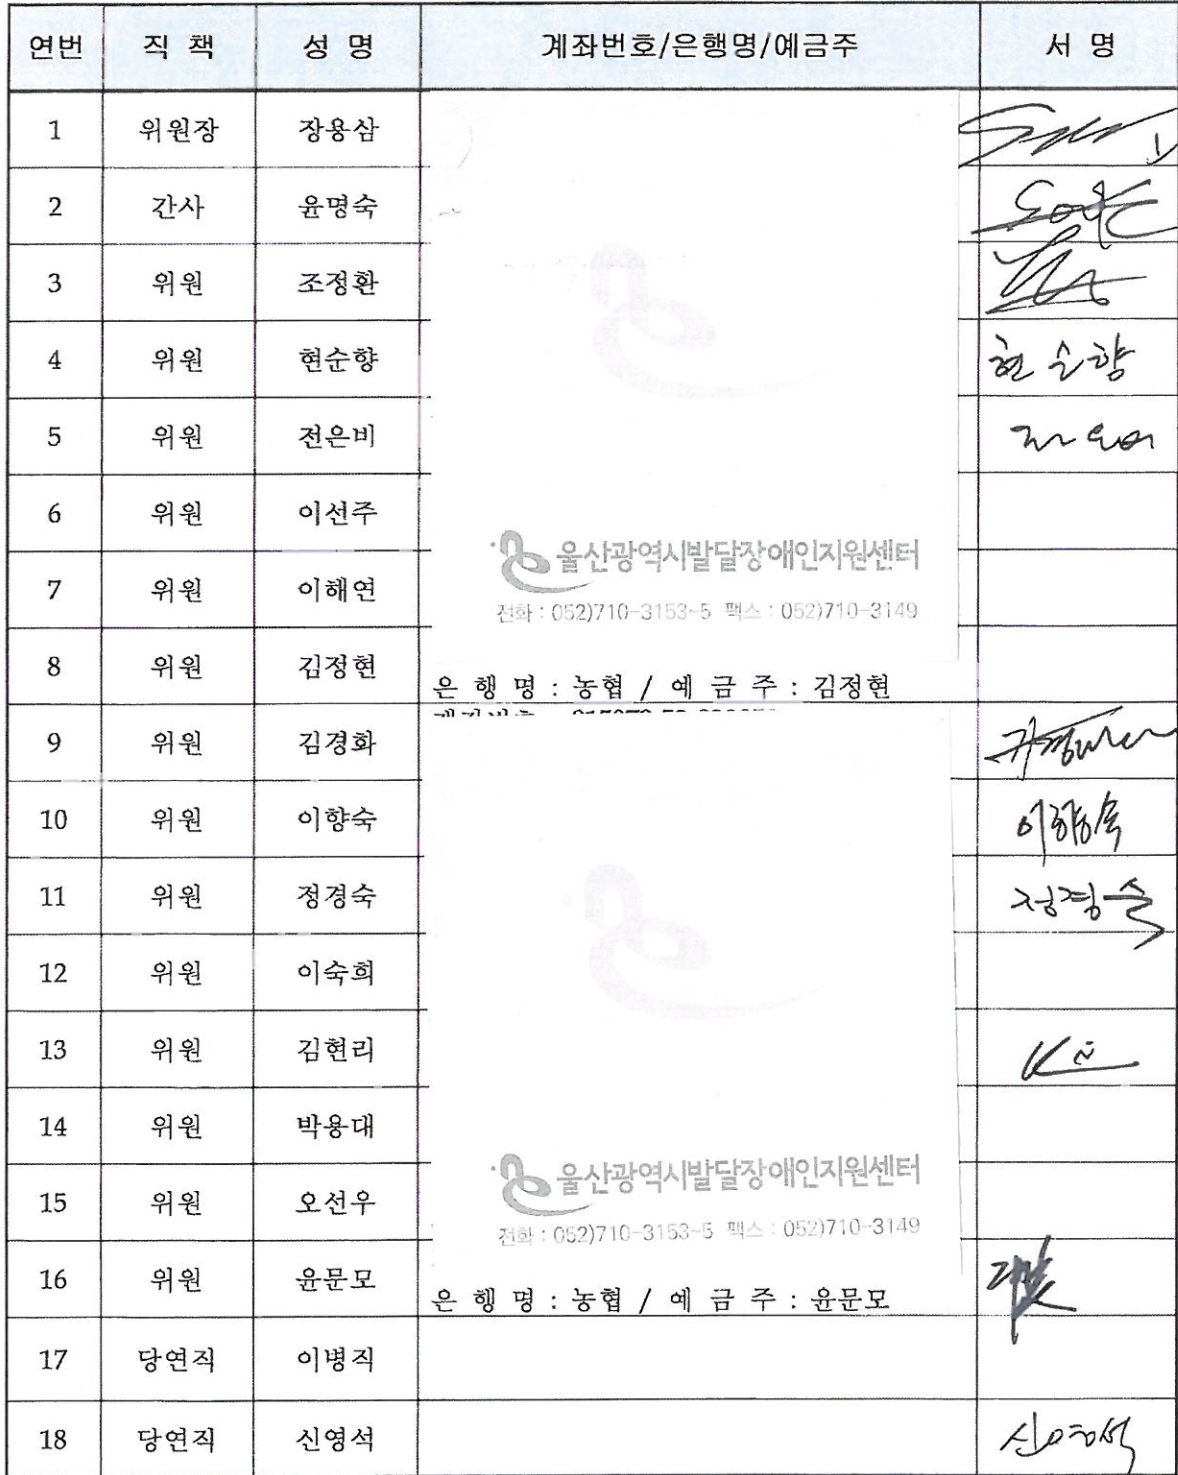 연번 직 책 성 명 계좌번호/은행명/예금주 서 명
1 위원장 장용삼
2 간사 윤명숙
3 위원 조정환
4 위원 현순향 현순향
5 위원 전은비
6 위원 이선주
울산광역시발달장애인지원센터
7 위원 이해연
전화 : 052)710-3153~5 팩스 : 052)710-3149
8 위원 김정현
은 행 명 : 농협 / 예 금 주 : 김정현
9 위원 김경화
10 위원 이향숙 이향숙
11 위원 정경숙 정경숙
12 위원 이숙희
13 위원 김현리
14 위원 박용대
울산광역시발달장애인지원센터
15 위원 오선우
전화 : 052)710-3153~5 팩스 : 052)710-3149
16 위원 윤문모
은 행 명 : 농협 / 예 금 주 : 윤문모
17 당연직 이병직
18 당연직 신영석 신영석